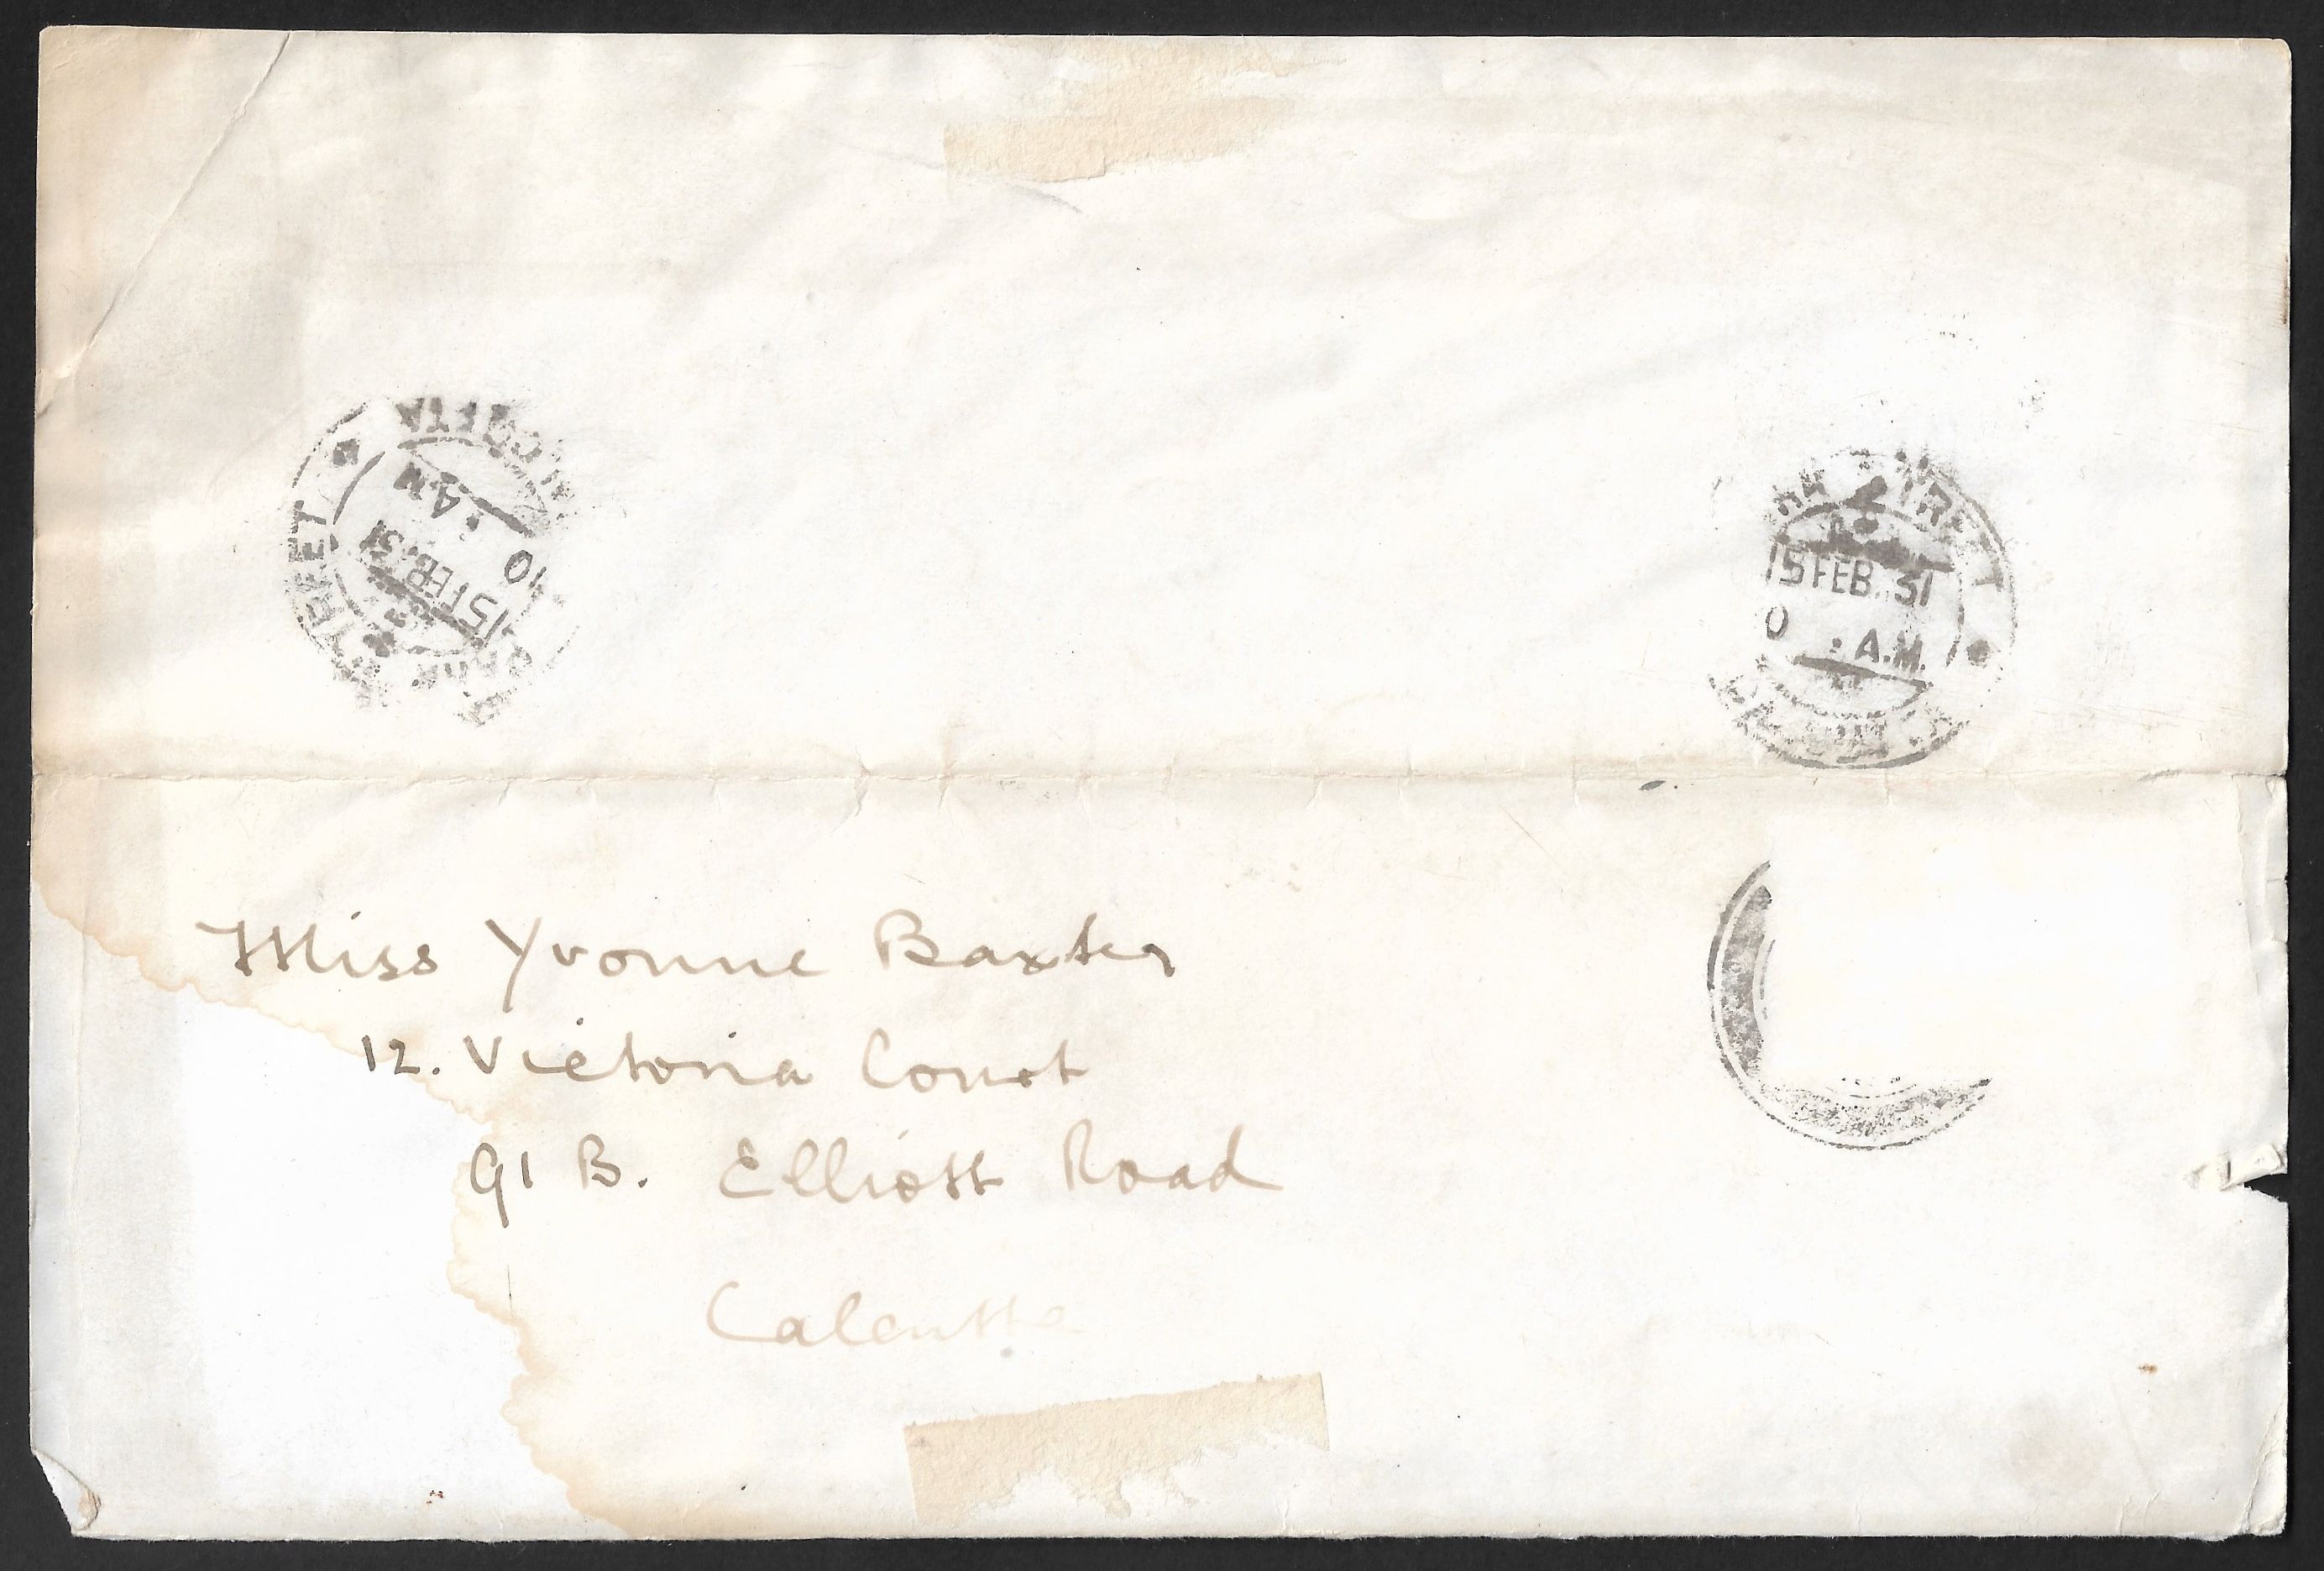 PARK STREET
CALCUTTA
15 FEB. 31
10 A.M.
STREET
15 FEB. 31
A.M.
Miss Yvonne Baxter
12. Victoria Court
91 B. Elliott Road
Calcutta